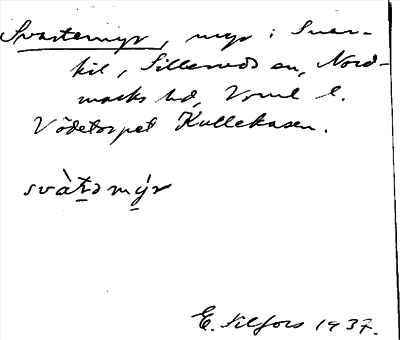 Svartemyr, myr i Svar-
kil, Silleruds sn, Nord-
marks hd, Vrml l.
Vödetorpet Kullekasen.
svàt̠ə mý̠r
E. Silfors 1937.